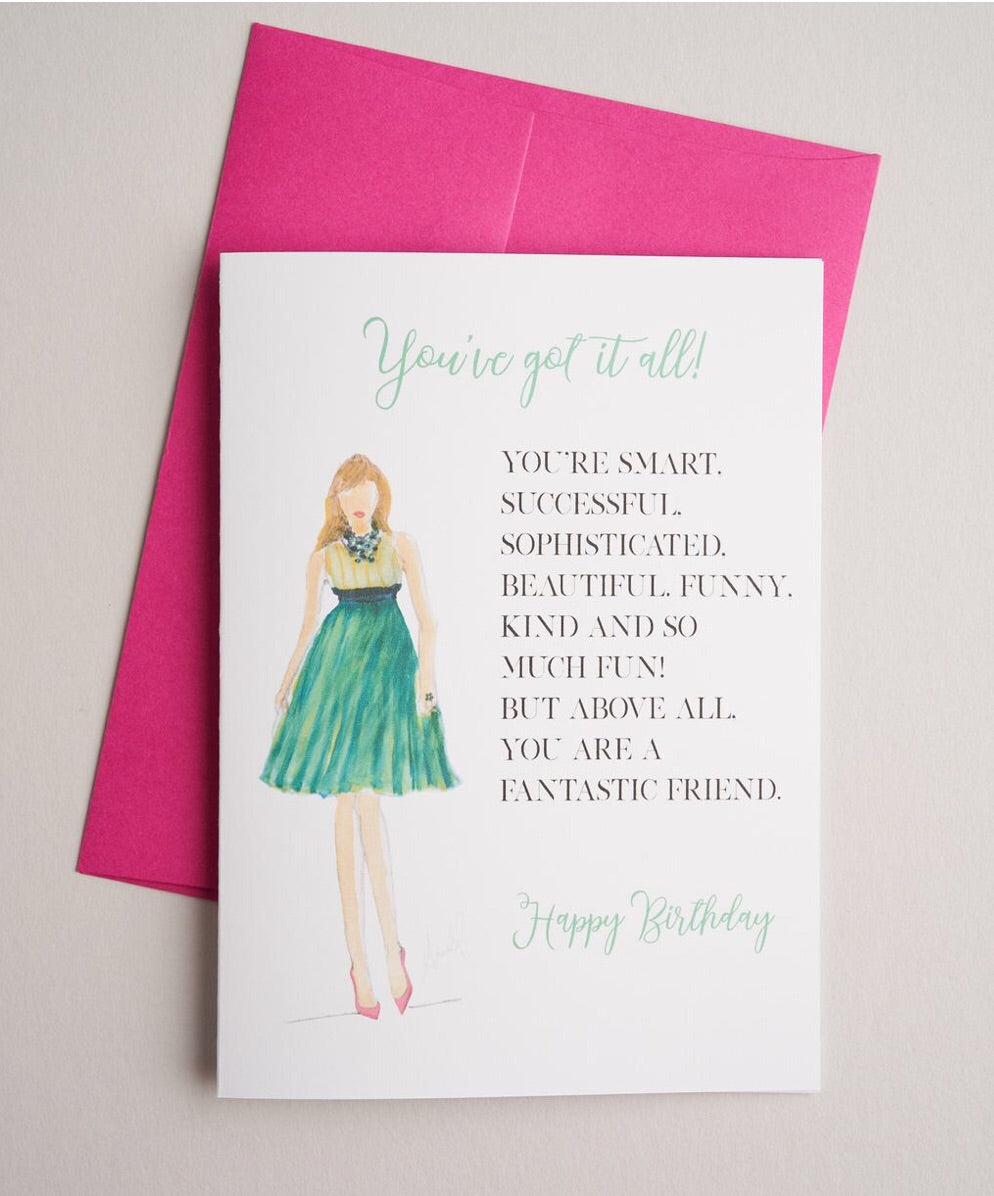 You've got it all!
YOU'RE SMART.
SUCCESSFUL.
SOPHISTICATED.
BEAUTIFUL. FUNNY.
KIND AND SO
MUCH FUN!
BUT ABOVE ALL,
YOU ARE A
FANTASTIC FRIEND.
Happy Birthday